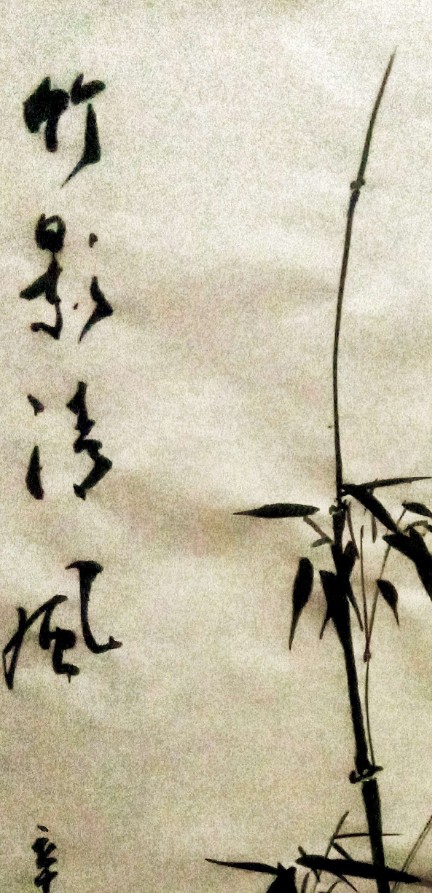 竹影清風
辛